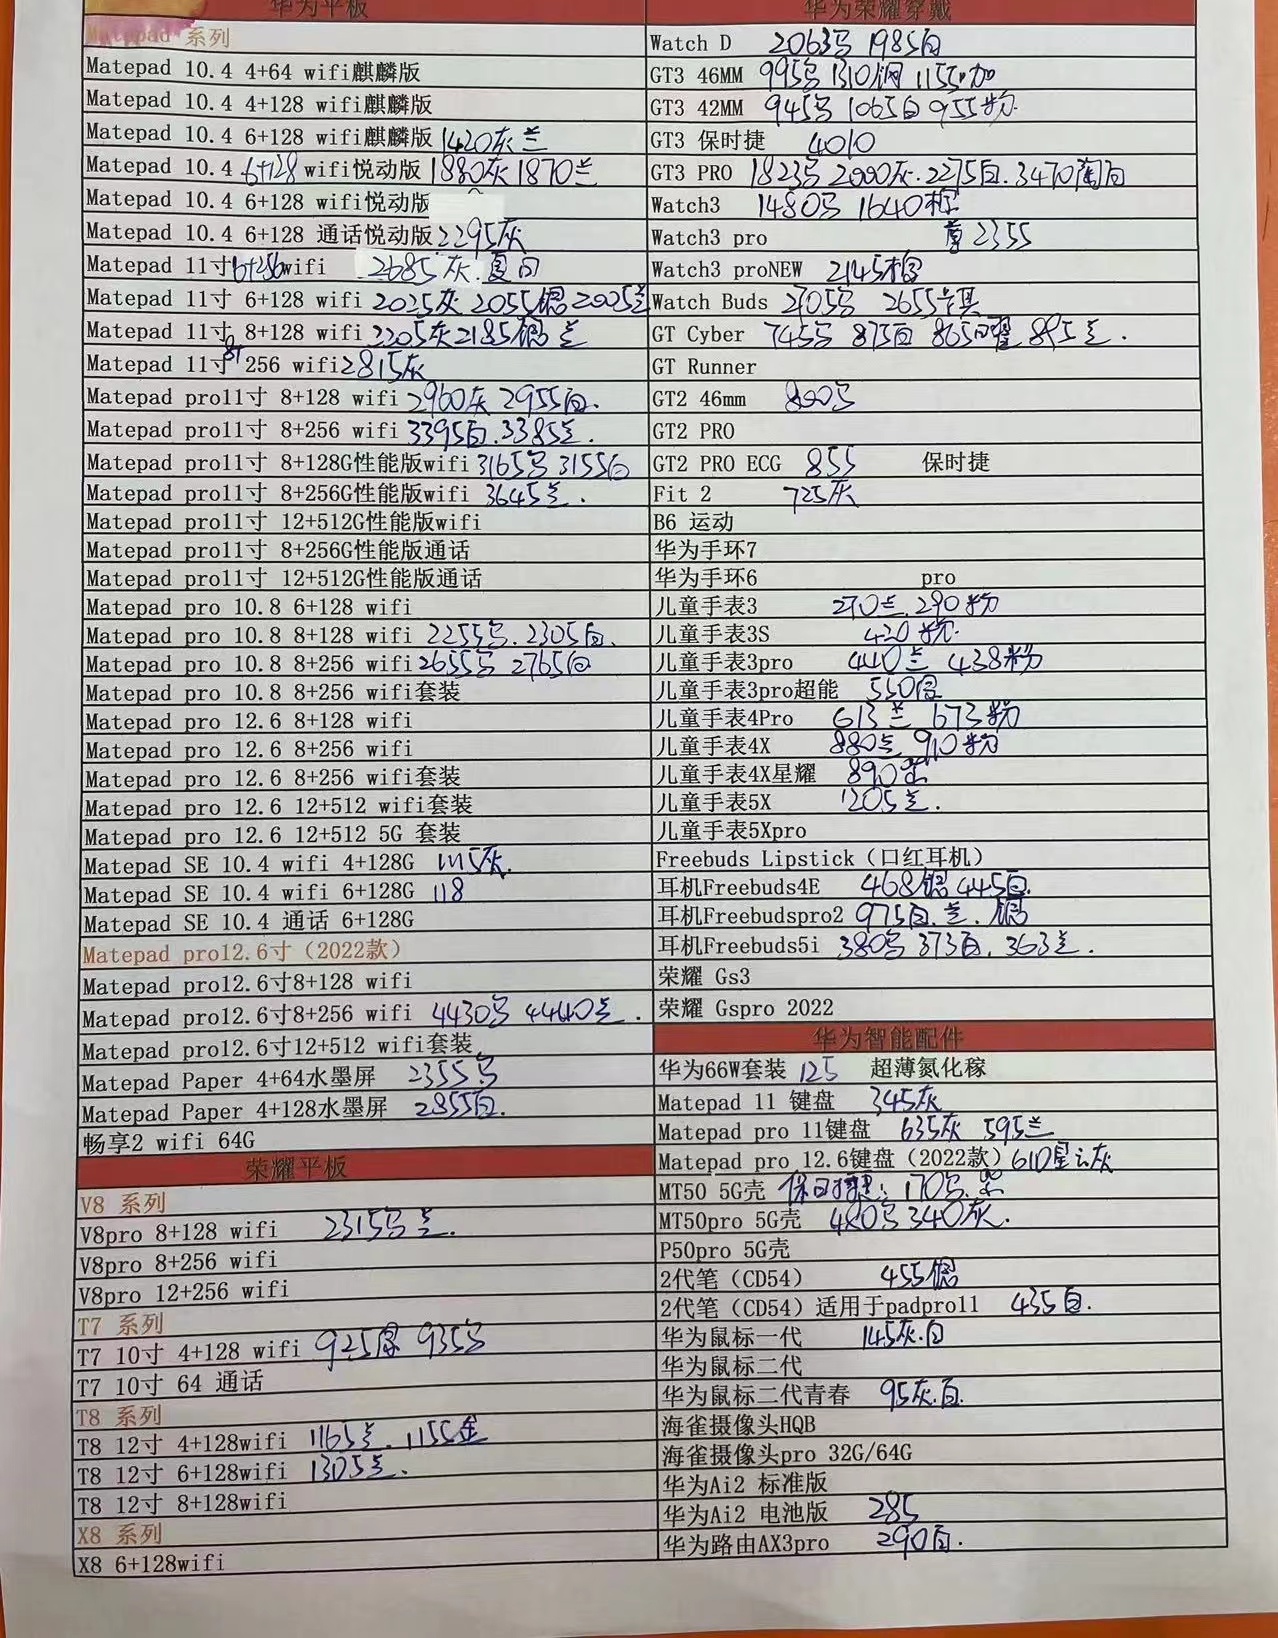 华为平板
Matepad 系列
Matepad 10.4 4+64 wifi麒麟版
Matepad 10.4 4+128 wifi麒麟版
Matepad 10.4 6+128 wifi麒麟版 1420灰兰
Matepad 10.4 6+128 wifi悦动版 1880灰 1870兰
Matepad 10.4 6+128 wifi悦动版
Matepad 10.4 6+128 通话悦动版 2295灰
Matepad 11寸 6+256 wifi 2685灰.
Matepad 11寸 6+128 wifi 2025灰 2055银 2005兰
Matepad 11寸 8+128 wifi 2205灰 2185银 兰
Matepad 11寸 8+ 256 wifi 2815灰
Matepad pro11寸 8+128 wifi 2960灰 2955白.
Matepad pro11寸 8+256 wifi 3395白.3385兰.
Matepad pro11寸 8+128G性能版wifi 3165黑 3155白
Matepad pro11寸 8+256G性能版wifi 3645兰.
Matepad pro11寸 12+512G性能版wifi
Matepad pro11寸 8+256G性能版通话
Matepad pro11寸 12+512G性能版通话
Matepad pro 10.8 6+128 wifi
Matepad pro 10.8 8+128 wifi 2255黑.2305白.
Matepad pro 10.8 8+256 wifi 2655黑 2765白
Matepad pro 10.8 8+256 wifi套装
Matepad pro 12.6 8+128 wifi
Matepad pro 12.6 8+256 wifi
Matepad pro 12.6 8+256 wifi套装
Matepad pro 12.6 12+512 wifi套装
Matepad pro 12.6 12+512 5G 套装
Matepad SE 10.4 wifi 4+128G 灰.
Matepad SE 10.4 wifi 6+128G 118
Matepad SE 10.4 通话 6+128G
Matepad pro12.6寸（2022款）
Matepad pro12.6寸8+128 wifi
Matepad pro12.6寸8+256 wifi 4430黑 4440兰.
Matepad pro12.6寸12+512 wifi套装
Matepad Paper 4+64水墨屏 2355黑
Matepad Paper 4+128水墨屏 2855白.
畅享2 wifi 64G
荣耀平板
V8 系列
V8pro 8+128 wifi 2315黑 兰.
V8pro 8+256 wifi
V8pro 12+256 wifi
T7 系列
T7 10寸 4+128 wifi 925 935黑
T7 10寸 64 通话
T8 系列
T8 12寸 4+128wifi 1165兰.1155金
T8 12寸 6+128wifi 1305兰.
T8 12寸 8+128wifi
X8 系列
X8 6+128wifi
华为荣耀穿戴
Watch D 2063黑 1985白
GT3 46MM 995黑 1310钢 1155加
GT3 42MM 945黑 1065白 955粉.
GT3 保时捷 4010
GT3 PRO 1823黑 2000灰.2275白.3470陶白
Watch3 1480黑 1640棕
Watch3 pro 尊2355
Watch3 proNEW 2145棕
Watch Buds 2705黑 2655
GT Cyber 745黑 875白 865曜 895兰.
GT Runner
GT2 46mm 800黑
GT2 PRO
GT2 PRO ECG 855 保时捷
Fit 2 725灰
B6 运动
华为手环7
华为手环6 pro
儿童手表3 270兰.290粉
儿童手表3S 420粉.
儿童手表3pro 440兰 438粉
儿童手表3pro超能 550
儿童手表4Pro 613兰 673粉
儿童手表4X 880兰 910粉
儿童手表4X星耀 890
儿童手表5X 1205兰.
儿童手表5Xpro
Freebuds Lipstick（口红耳机）
耳机Freebuds4E 468银 445白.
耳机Freebudspro2 975白.兰.银
耳机Freebuds5i 380黑 373白.363兰.
荣耀 Gs3
荣耀 Gspro 2022
华为智能配件
华为66W套装 125 超薄氮化稼
Matepad 11 键盘 345灰
Matepad pro 11键盘 635灰 595兰
Matepad pro 12.6键盘（2022款）610星云灰
MT50 5G壳 保时捷: 170黑.
MT50pro 5G壳 480黑 340灰.
P50pro 5G壳
2代笔（CD54） 455银
2代笔（CD54）适用于padpro11 435白.
华为鼠标一代 145灰.白
华为鼠标二代
华为鼠标二代青春 95灰.白.
海雀摄像头HQB
海雀摄像头pro 32G/64G
华为Ai2 标准版
华为Ai2 电池版 285
华为路由AX3pro 290白.